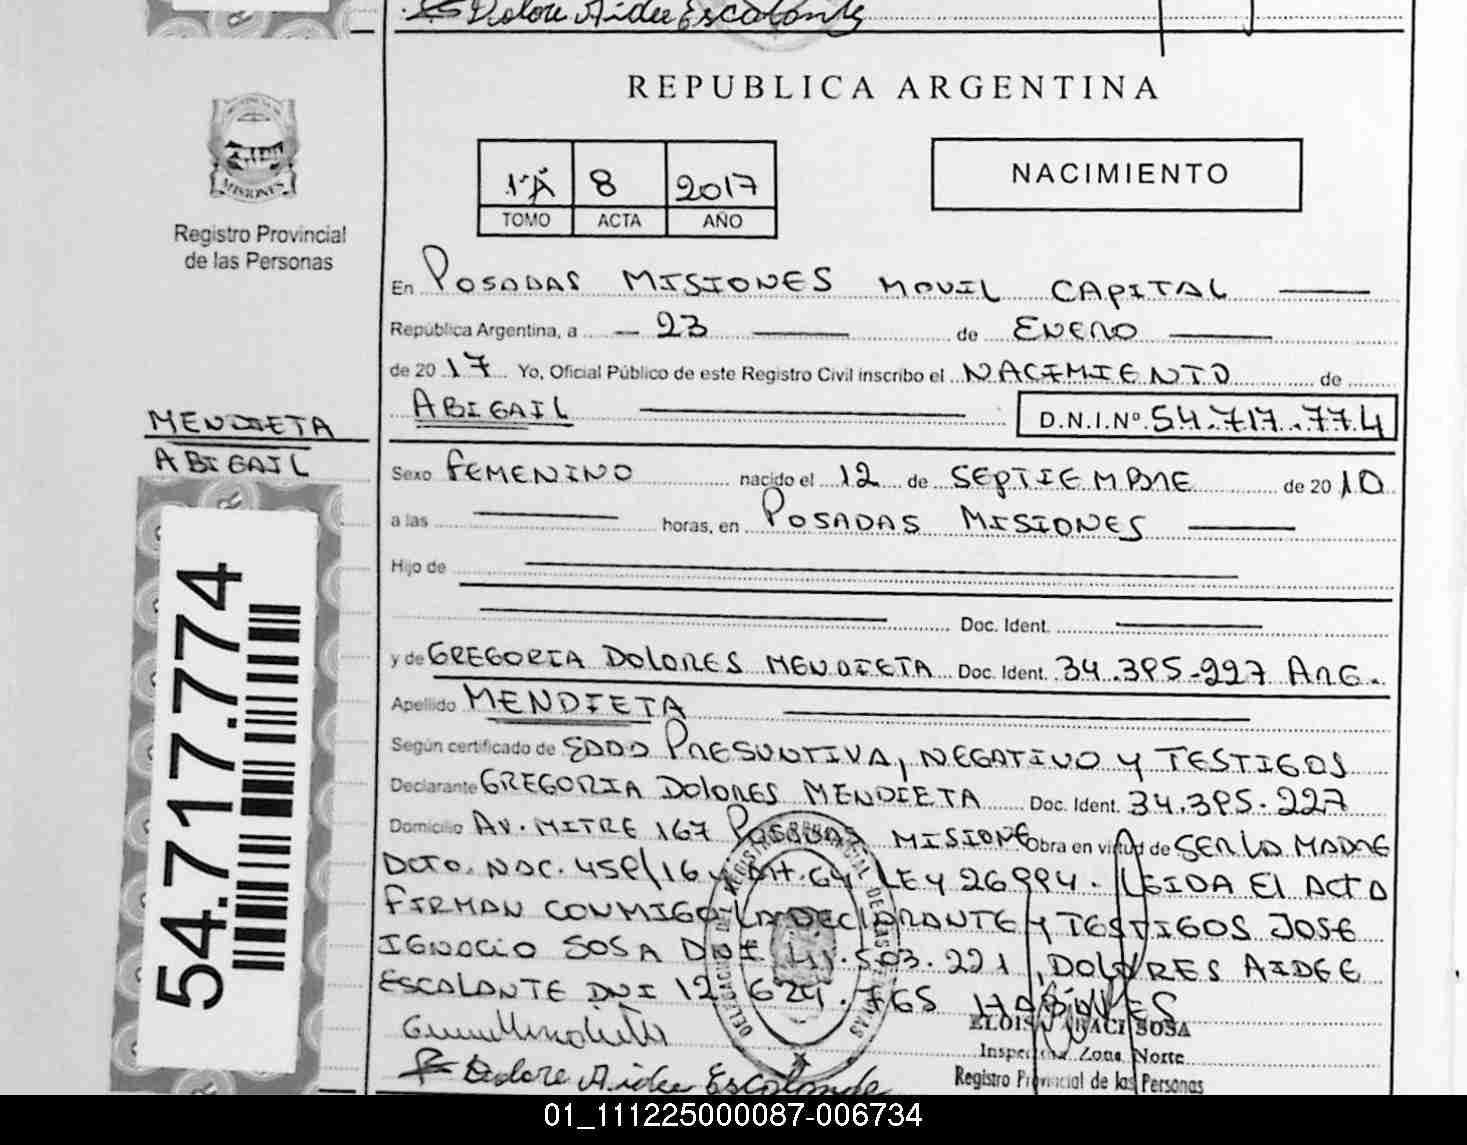 Dolore Aidee Escalante
REPUBLICA ARGENTINA
1ºA 8 2017
TOMO ACTA AÑO
NACIMIENTO
MISIONES
Registro Provincial
de las Personas
En POSADAS MISIONES MOVIL CAPITAL
República Argentina, a 23 de ENERO
de 20 17 Yo, Oficial Público de este Registro Civil inscribo el NACIMIENTO de
ABIGAIL D.N.I.Nº 54.717.774
MENDIETA
ABIGAIL
54.717.774
Sexo FEMENINO nacido el 12 de SEPTIEMBRE de 20 10
a las horas, en POSADAS MISIONES
Hijo de
Doc. Ident.
y de GREGORIA DOLORES MENDIETA Doc. Ident. 34.395.227 ARG.
Apellido MENDIETA
Según certificado de EDAD PRESUNTIVA, NEGATIVO Y TESTIGOS
Declarante GREGORIA DOLORES MENDIETA Doc. Ident. 34.395.227
Domicilio AV. MITRE 167 POSADAS MISIONE Obra en virtud de SER LA MADRE
DCTO. NAC. 459/16 Y ART. 64 LEY 26994. LEIDA EL ACTA
FIRMAN CONMIGO LA DECLARANTE Y TESTIGOS JOSE
IGNACIO SOSA DNI .503.221, DOLORES AIDEE
ESCALANTE DNI 12 624.765 HABILES
ELOISA ARACI SOSA
Inspectora Zona Norte
Registro Provincial de las Personas
Dolore Aidee Escalande
01_111225000087-006734